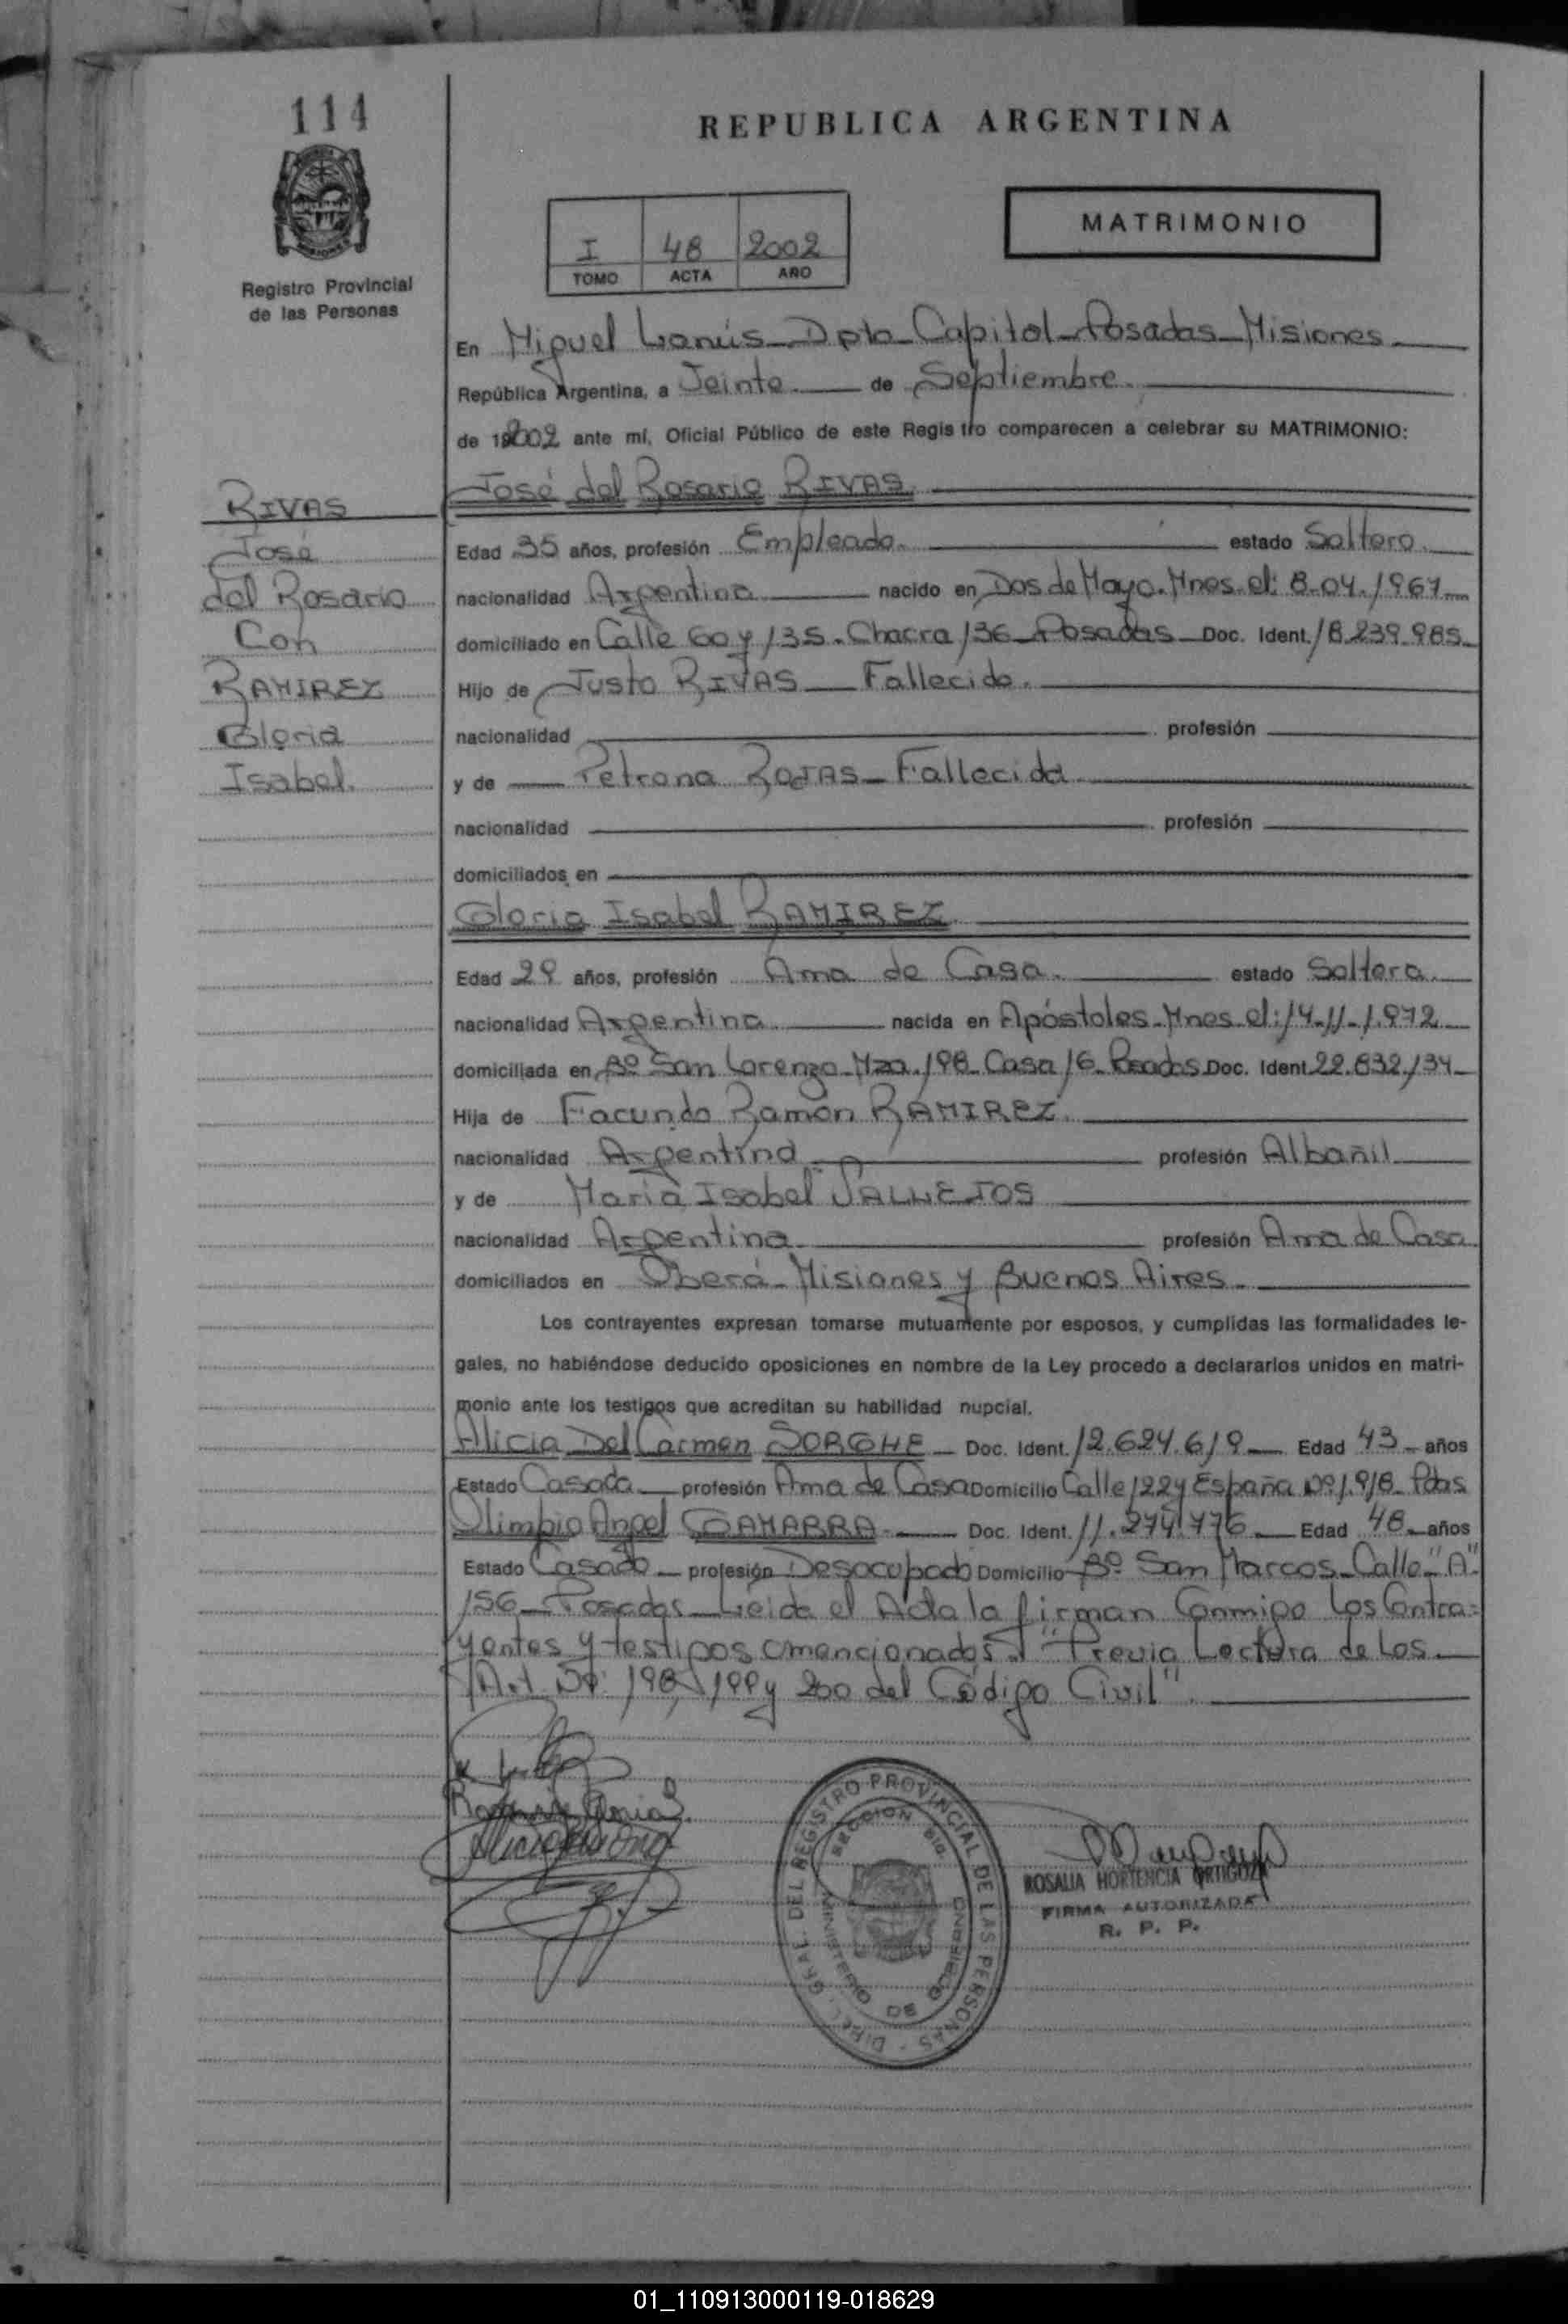 114
REPUBLICA ARGENTINA
MATRIMONIO
I 48 2002
TOMO ACTA AÑO
Registro Provincial
de las Personas
En Miguel Lanús - Dpto Capital - Posadas - Misiones
República Argentina, a Veinte de Septiembre.
de 2002 ante mí, Oficial Público de este Registro comparecen a celebrar su MATRIMONIO:
RIVAS
José
del Rosario
Con
RAMIREZ
Gloria
Isabel.
José del Rosario RIVAS
Edad 35 años, profesión Empleado. estado Soltero.
nacionalidad Argentina nacido en Dos de Mayo. Mnes. el: 8-04-1967
domiciliado en Calle 60 y 135. Chacra 136 - Posadas Doc. Ident. 18.239.985
Hijo de Justo RIVAS - Fallecido.
nacionalidad profesión
y de Petrona ROJAS - Fallecida
nacionalidad profesión
domiciliados en
Gloria Isabel RAMIREZ
Edad 29 años, profesión Ama de Casa. estado Soltera.
nacionalidad Argentina nacida en Apóstoles - Mnes el: 14-11-1.972
domiciliada en Bº San Lorenzo - Mza. 198 Casa 16 - Posadas Doc. Ident. 22.832.134
Hija de Facundo Ramón RAMIREZ.
nacionalidad Argentina profesión Albañil
y de María Isabel VALLEJOS
nacionalidad Argentina profesión Ama de Casa
domiciliados en Oberá - Misiones y Buenos Aires.
Los contrayentes expresan tomarse mutuamente por esposos, y cumplidas las formalidades le-
gales, no habiéndose deducido oposiciones en nombre de la Ley procedo a declararlos unidos en matri-
monio ante los testigos que acreditan su habilidad nupcial.
Alicia Del Carmen SORGHE Doc. Ident. 12.624.619 Edad 43 años
Estado Casada profesión Ama de Casa Domicilio Calle 122 y España Nº 1.918 - Pdas
Olimpio Angel GAMARRA Doc. Ident. 11.274.776 Edad 48 años
Estado Casado profesión Desocupado Domicilio Bº San Marcos - Calle "A"
156 - Posadas - Leida el Acta la firman Conmigo Los Contra-
yentes y testigos mencionados. "Previa Lectura de Los
Art Nº: 198, 199 y 200 del Código Civil".
DIREC. GRAL. DEL REGISTRO PROVINCIAL DE LAS PERSONAS
MINISTERIO DE GOBIERNO
ROSALIA HORTENCIA ORTIGOZA
FIRMA AUTORIZADA
R. P. P.
01_110913000119-018629